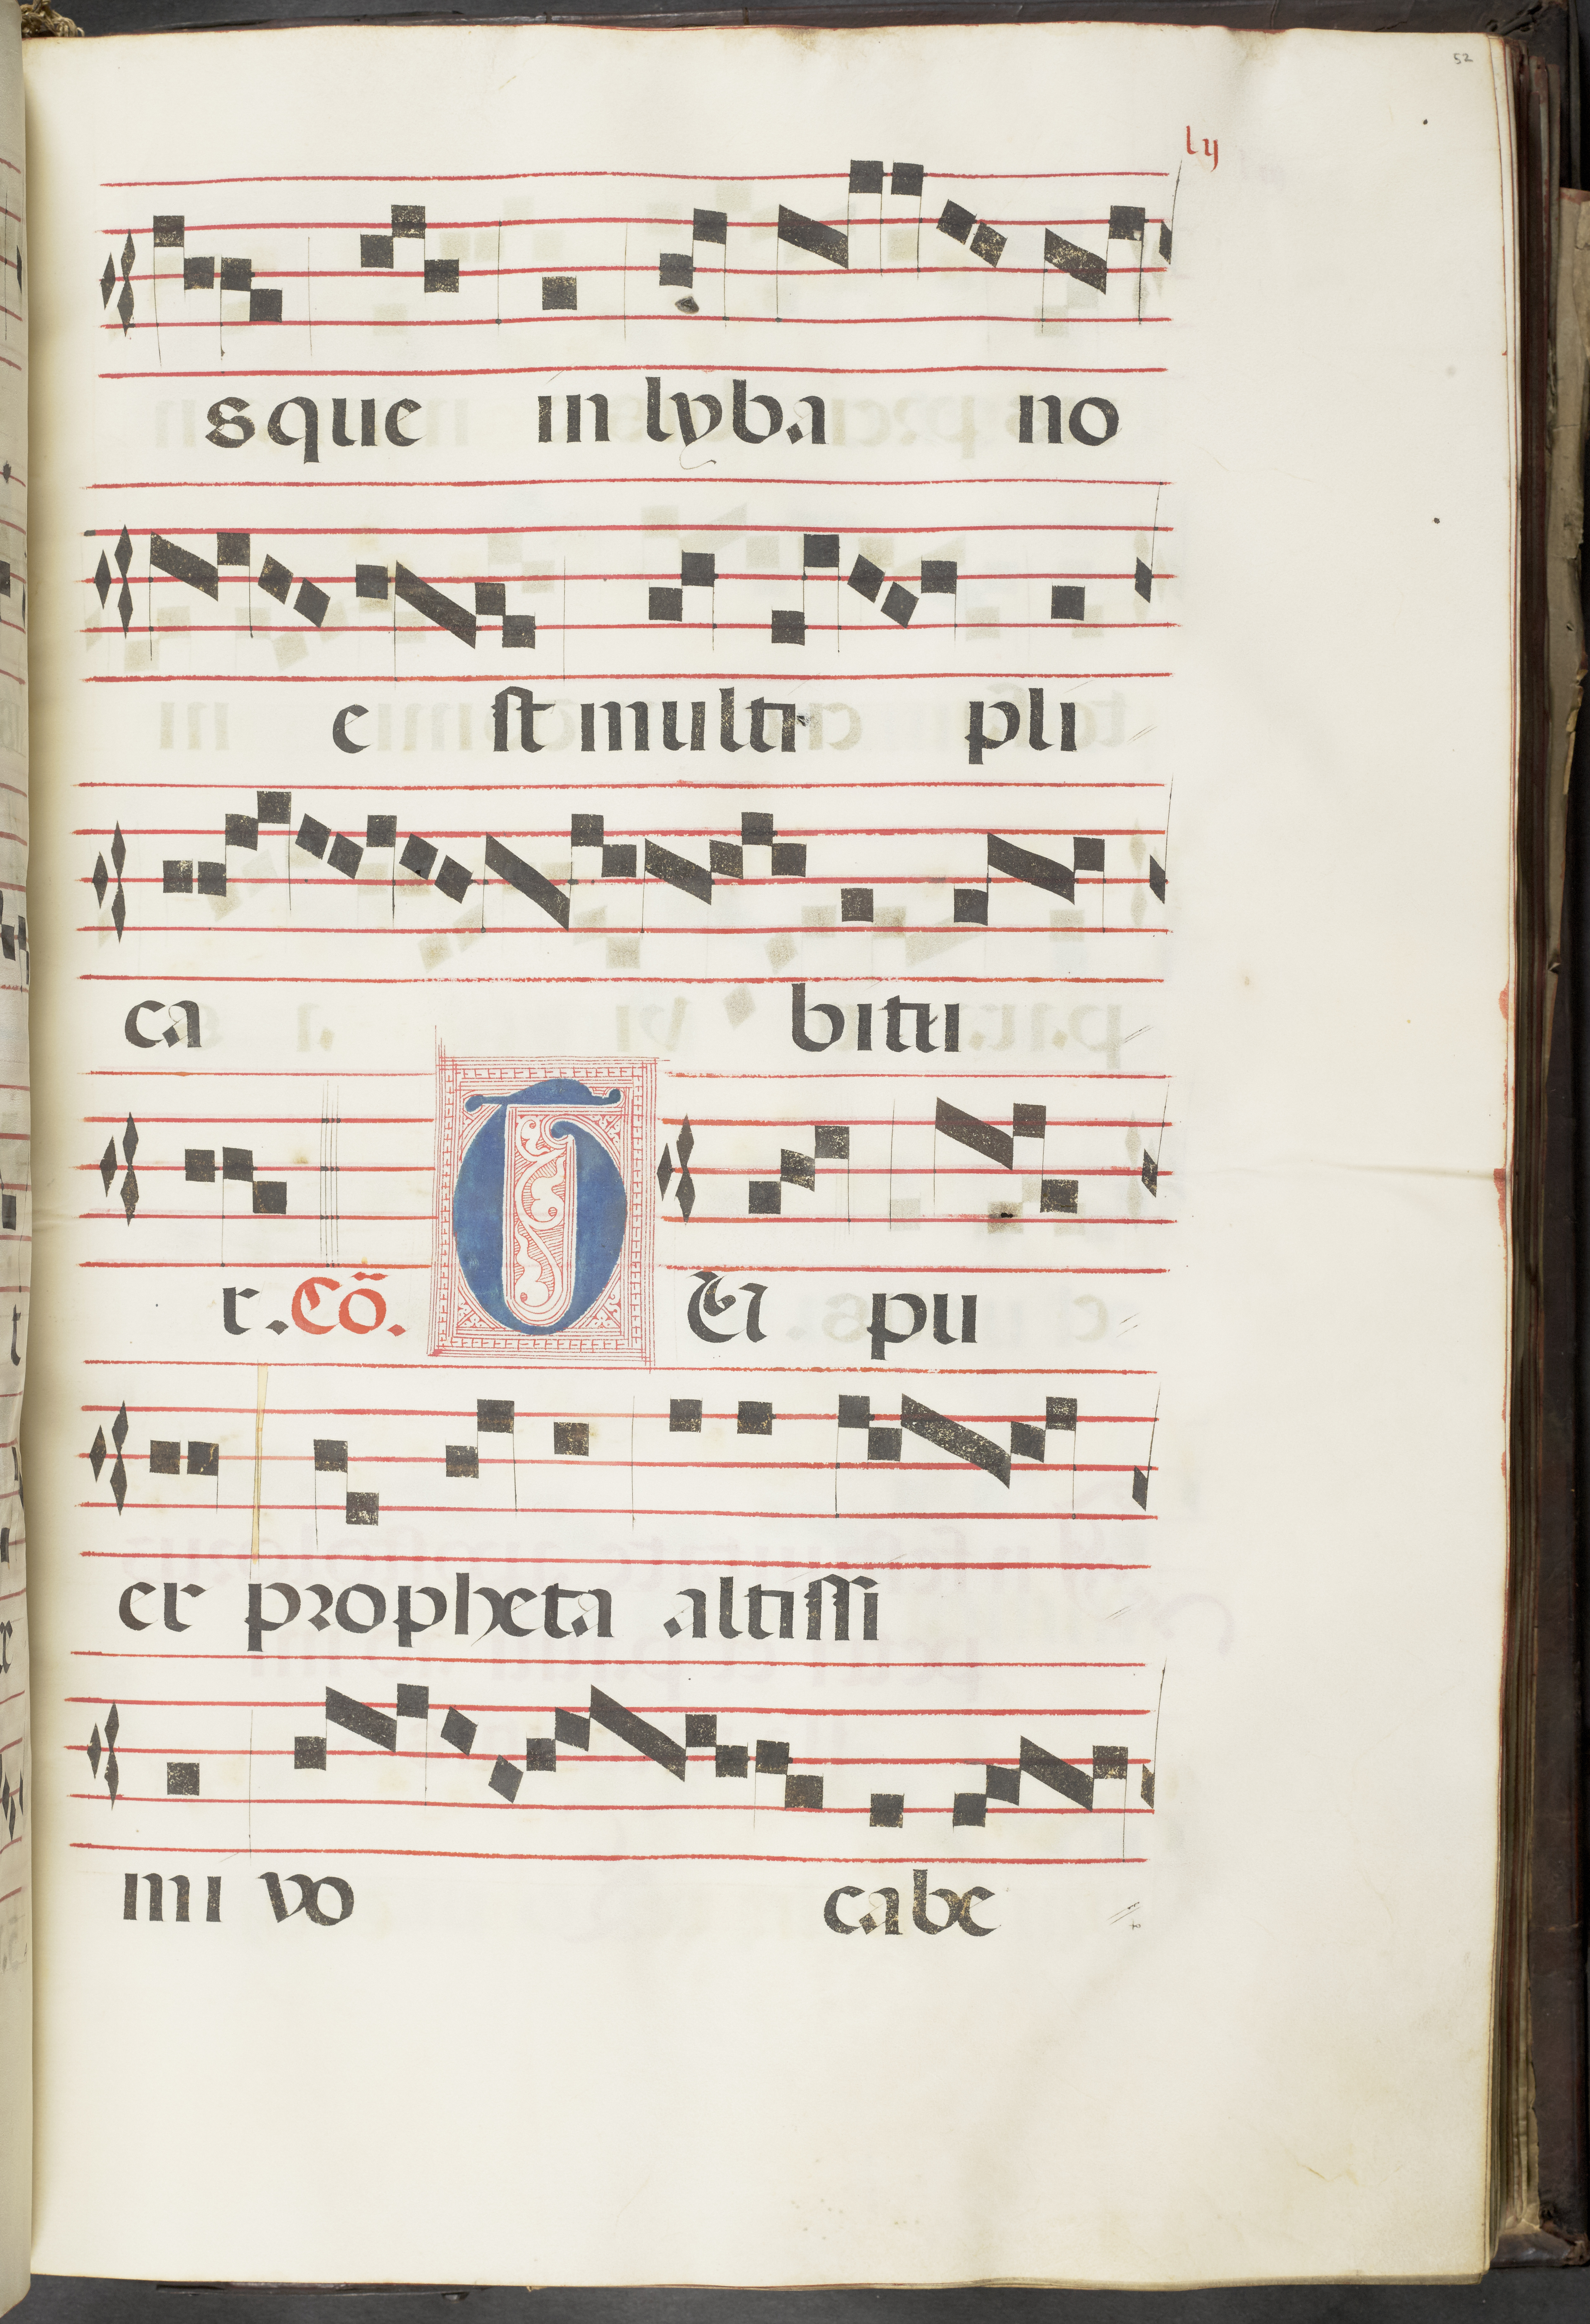 52
lij
sque in lyba no
e st multi pli
ca bitu
r. Cõ. T EI pu
er propheta altissi
mi vo cabe